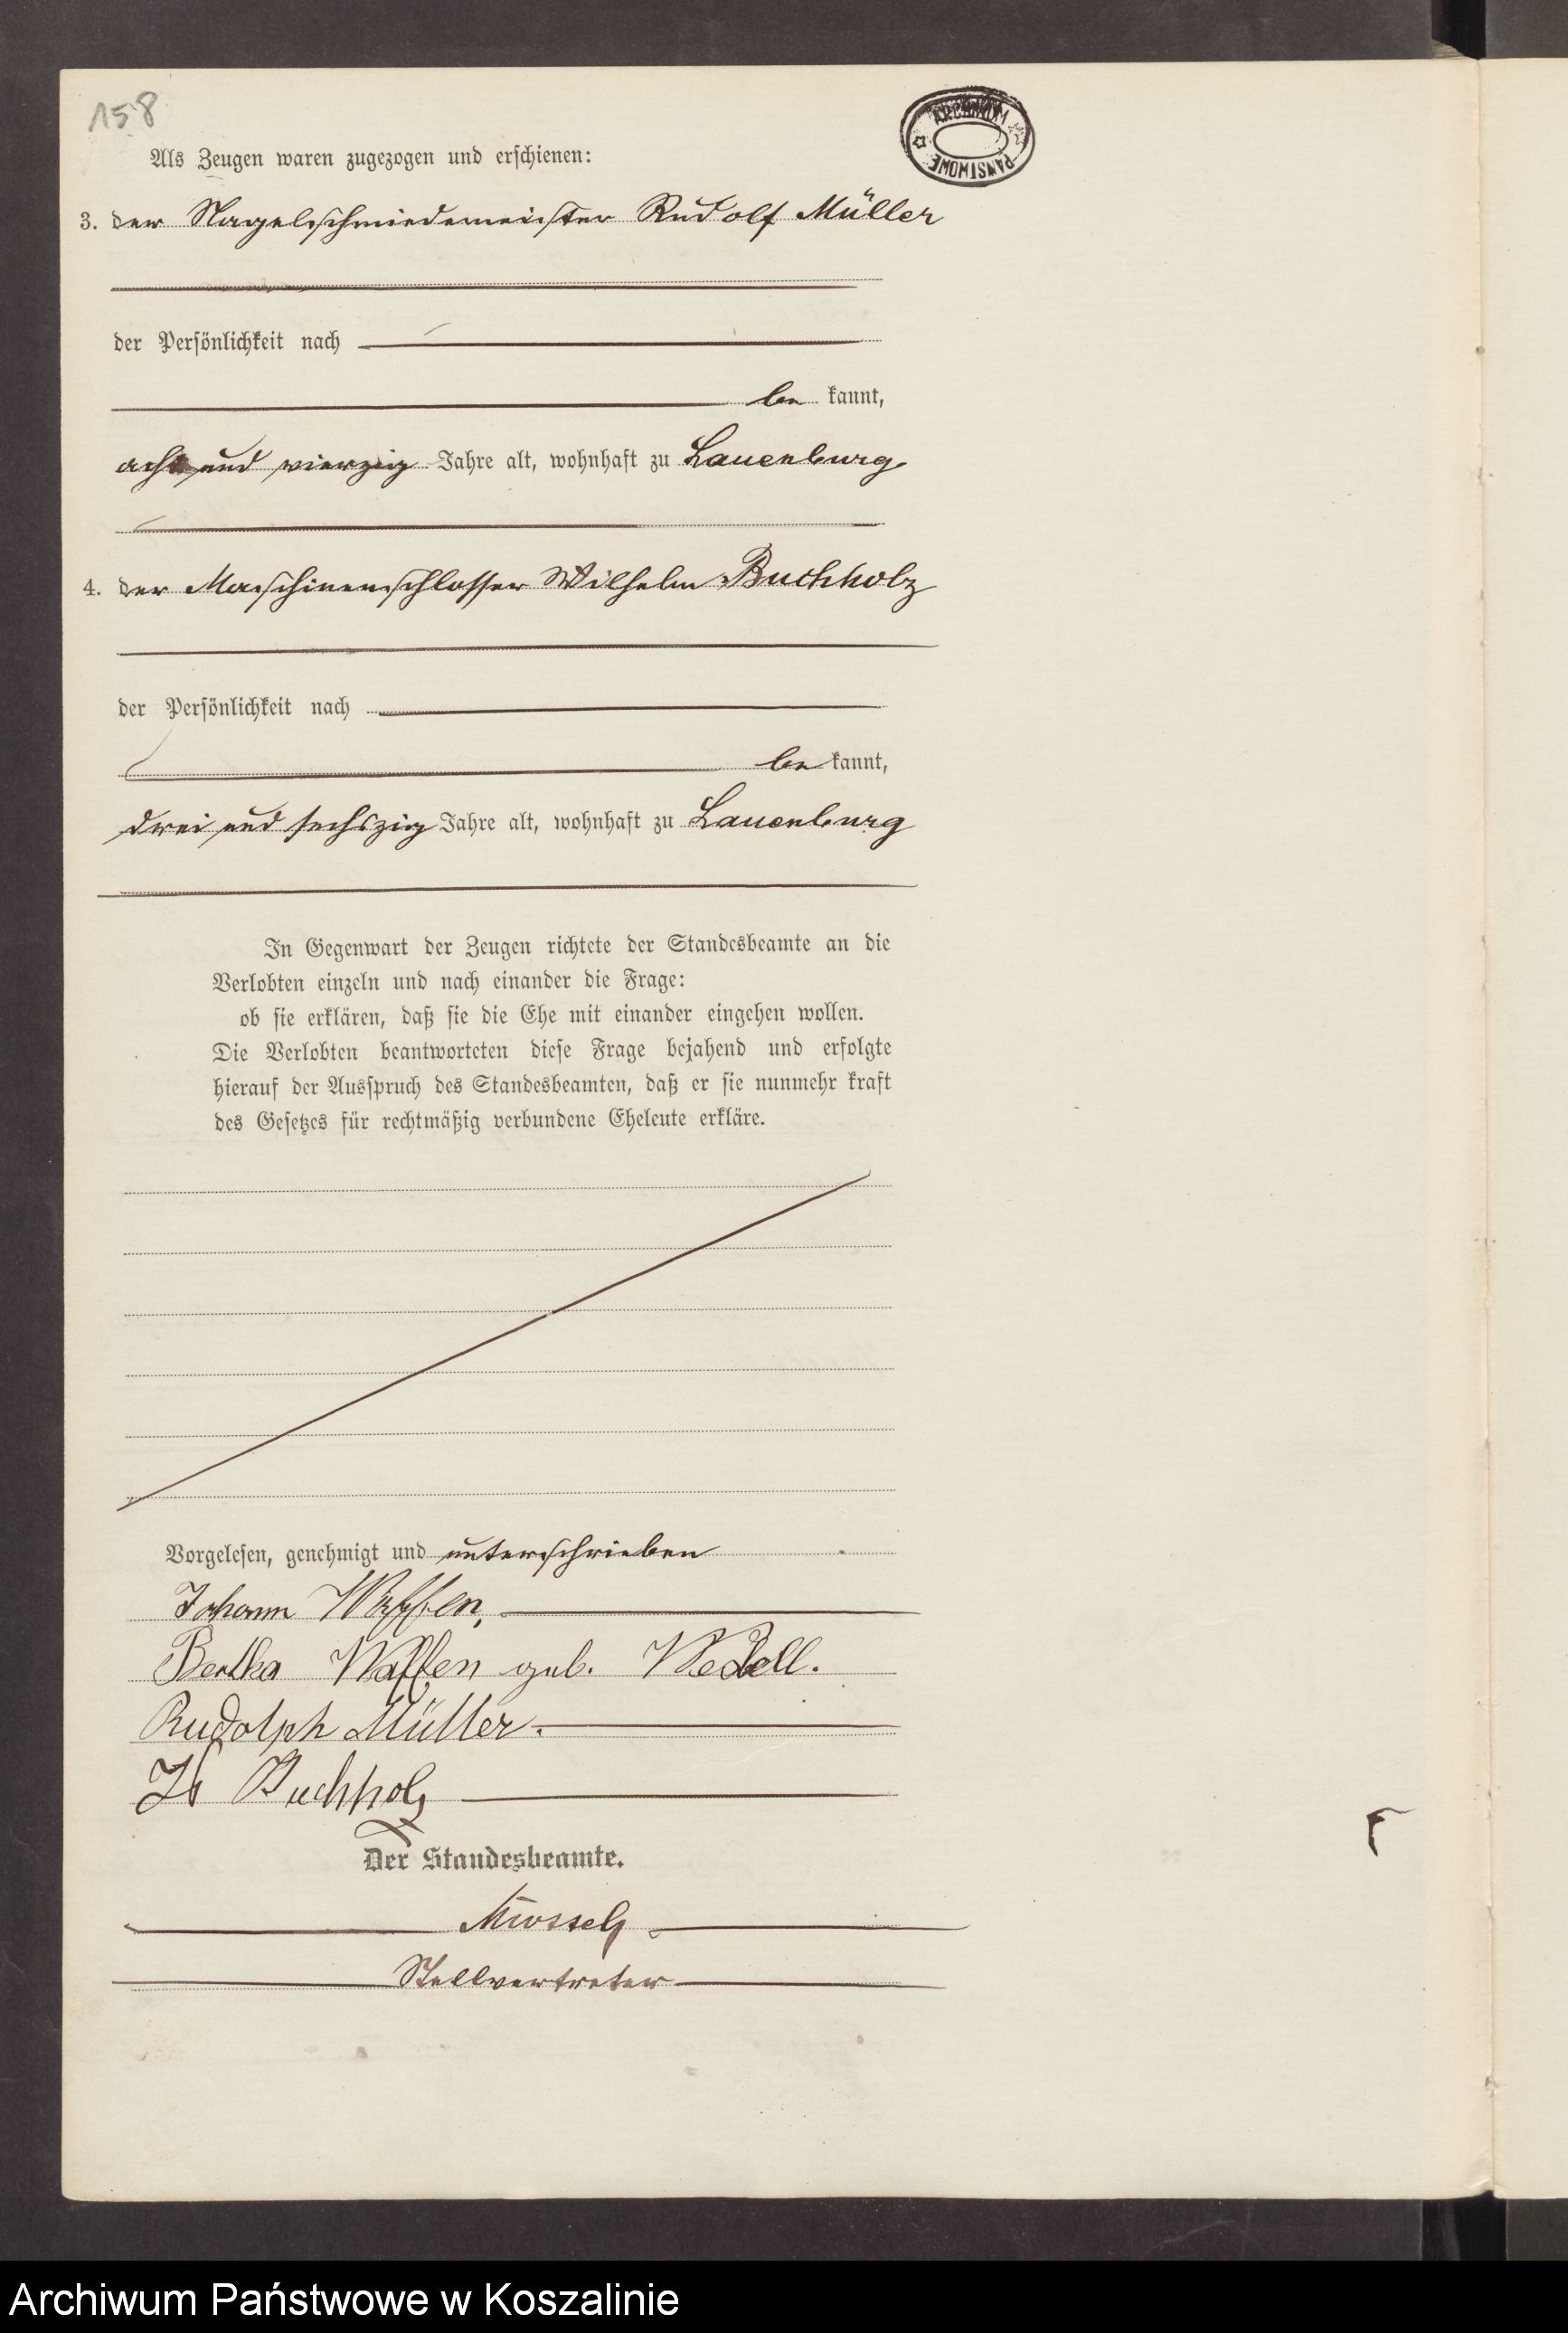 158
ARCHIWUM PAŃSTWOWE
Als Zeugen waren zugezogen und erschienen:
3. der Nagelschmiedemeister Rudolf Müller
der Persönlichkeit nach
be kannt,
acht und vierzig Jahre alt, wohnhaft zu Lauenburg
4. der Maschinenschlosser Wilhelm Buchholz
der Persönlichkeit nach
be kannt,
drei und sechszig Jahre alt, wohnhaft zu Lauenburg
In Gegenwart der Zeugen richtete der Standesbeamte an die
Verlobten einzeln und nach einander die Frage:
ob sie erklären, daß sie die Ehe mit einander eingehen wollen.
Die Verlobten beantworteten diese Frage bejahend und erfolgte
hierauf der Ausspruch des Standesbeamten, daß er sie nunmehr kraft
des Gesetzes für rechtmäßig verbundene Eheleute erkläre.
Vorgelesen, genehmigt und unterschrieben
Johann
Bertha geb. Wedell.
Rudolph Müller.
Buchholz
Der Standesbeamte.
Stellvertreter
Archiwum Państwowe w Koszalinie